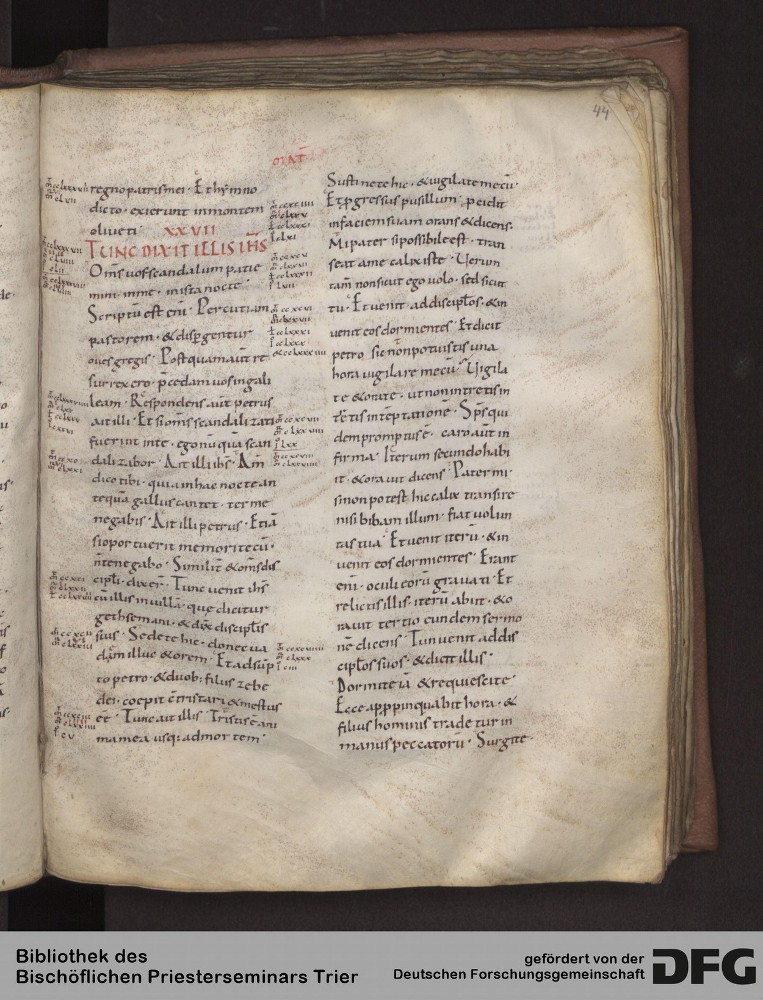 44
regno patris mei · Et hymno
dicto · exierunt in montem
oliveti · XXVII
TUNC DIXIT ILLIS IHS
Oms vos scandalum patie
mini inme · in ista nocte ·
Scriptū est enī · Percutiam
pastorem · & dispgentur
oves gregis · Postquam aūt re
surrexero · p̄cedam vos in gali
leam · Respondens aūt petrus
ait illi · Et si oms scandalizati
fuerint in te · ego nūquā scan
dalizabor · Ait illi ihs · Am̄
dico tibi · quia in hac nocte an
tequā gallus cantet · ter me
negabis · Ait illi petrus · Etiā
si oportuerit me mori tecū ·
n̄ te negabo · Similit & oms dis
cipli · dixer̄ · Tunc venit ihs
cū illis in villā · que dicitur
gethsemani · & dix discipl̄is
suis · Sedete hic · donec va
dā illuc & orem · Et adsūp
to petro · & duob; filiis zebe
dei · coepit c̄tristari & mestus
ee · Tunc ait illis · Tristis ē ani
ma mea usq; ad mortem ·
Sustinete hic · & vigilate mecū ·
Et pgressus pusillum · pcidit
in faciem suam orans & dicens ·
Mi pater si possibile est · tran
seat a me calix iste · Verum
tam̄ non sicut ego volo · sed sicut
tu · Et venit · ad discipl̄os · & in
venit eos dormientes · Et dicit
petro · sic non potuistis una
hora vigilare mecū · Vigila
te & orate · ut non intretis in
temptatione · Sps qui
dem promptus ē · caro aūt in
firma · Iterum secundo habi
it · & oravit dicens · Pater mi ·
si non potest hic calix transire
nisi bibam illum · fiat volun
tas tua · Et venit iterū · & in
venit eos dormientes · Erant
enī · oculi eorū gravati · Et
relictis illis · iterū abiit · & o
ravit tertio eundem sermo
nē dicens · Tunc venit ad dis
cipl̄os suos · & dicit illis ·
Dormite iā & requiescite ·
Ecce appropinquabit hora · &
filius hominis tradetur in
manus peccatorū · Surgite ·
Bibliothek des
Bischöflichen Priesterseminars Trier
gefördert von der
Deutschen Forschungsgemeinschaft
DFG